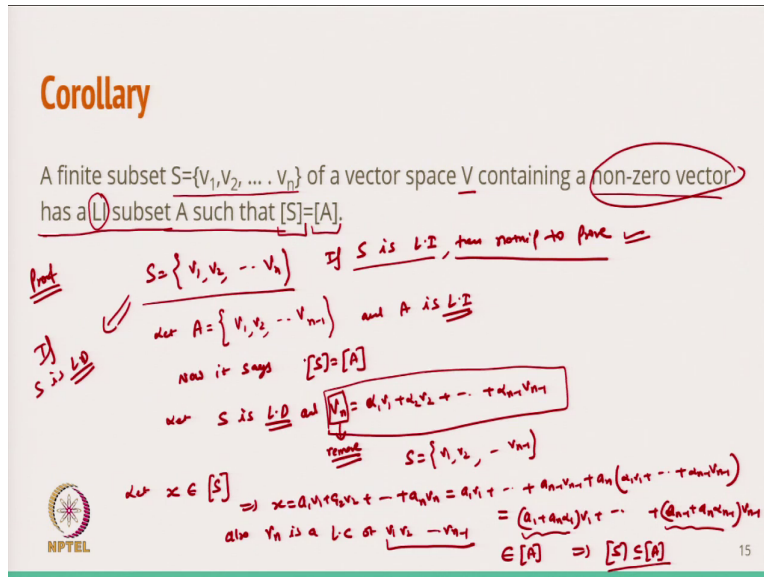 Corollary
A finite subset S={v₁,v₂, ... . vₙ} of a vector space V containing a non-zero vector
has a LI subset A such that [S]=[A].
Proof S={v₁, v₂, -- vₙ} If S is L.I, then nothing to prove
If S is LD
Let A={v₁, v₂, -- vₙ₋₁} and A is L.I
Now it says [S]=[A]
Let S is L.D and vₙ = α₁v₁ + α₂v₂ + -- + αₙ₋₁vₙ₋₁
remove S={v₁, v₂, - vₙ₋₁}
Let x ∈ [S] ⇒ x = a₁v₁+a₂v₂+--+aₙvₙ = a₁v₁+ -- + aₙ₋₁vₙ₋₁+aₙ(α₁v₁+--+αₙ₋₁vₙ₋₁)
also vₙ is a L.C of v₁ v₂ -- vₙ₋₁ = (a₁+aₙα₁)v₁+ -- +(aₙ₋₁+aₙαₙ₋₁)vₙ₋₁
∈ [A] ⇒ [S] ⊆ [A]
NPTEL
15